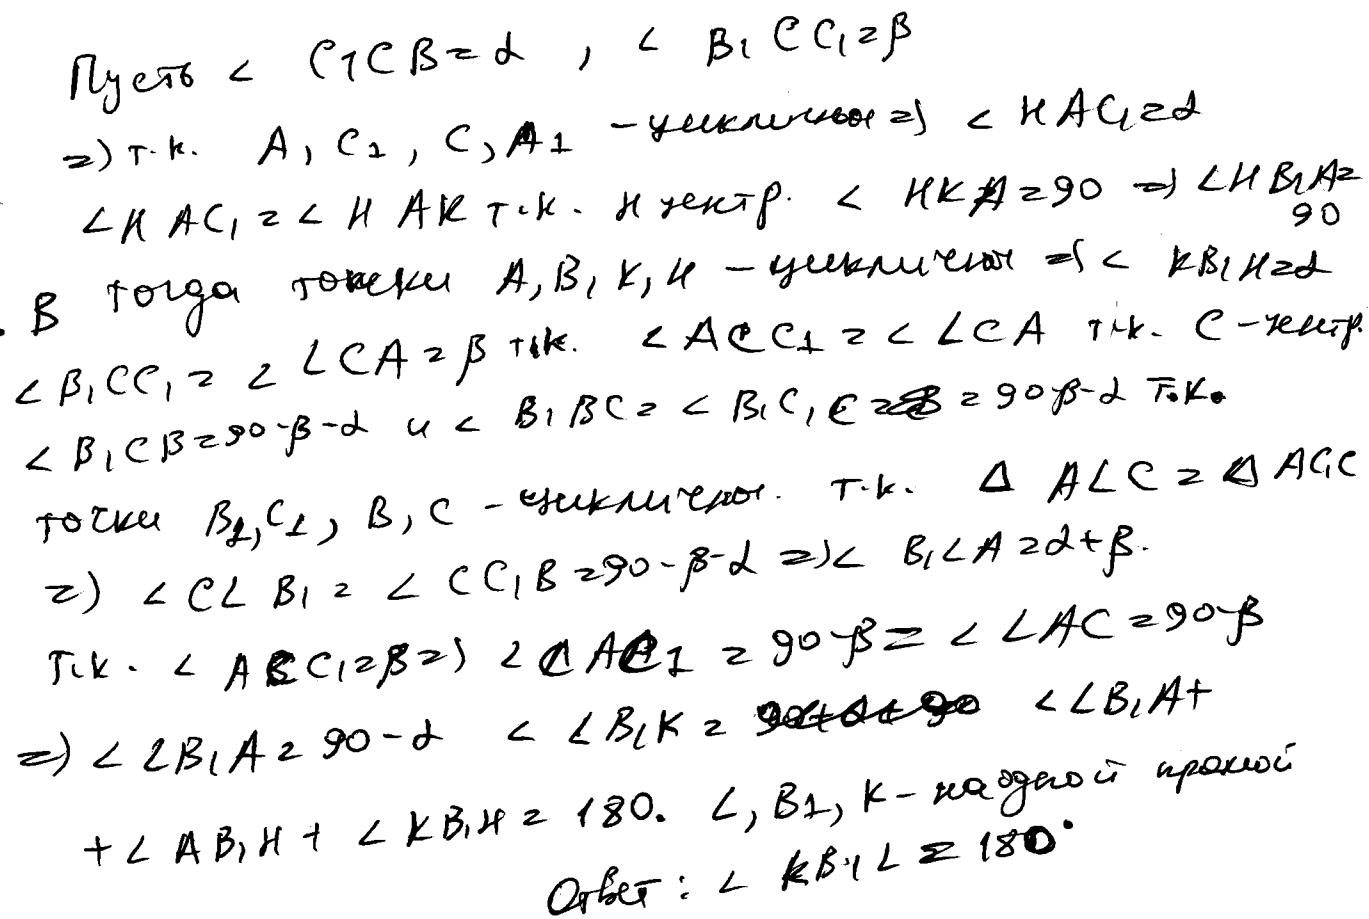 Пусть < C1CB=α , < B1CC1=β
=) т.к. A, C1, C, A1 -цикличные =) < HAC1=α
<HAC1=<HAK т.к. H центр. < HKA=90 =) <HB1A=90
В тогда точки A,B1,K,H -цикличны =) < KB1H=α
<B1CC1= < LCA=β т.к. <ACC1=<LCA т.к. C-центр.
<B1CB=90-β-α и < B1BC=<B1C1C=90-β-α т.к.
точки B1,C1,B,C -цикличны. т.к. Δ ALC=Δ AC1C
=) <CLB1=<CC1B=90-β-α =)< B1LA=α+β.
т.к. <ACC1=β=) <CAC1=90-β=<LAC=90-β
=) <LB1A=90-α < LB1K= <LB1A+
+<AB1H+<KB1H=180. L,B1,K-на одной прямой
Ответ: < KB1L=180°